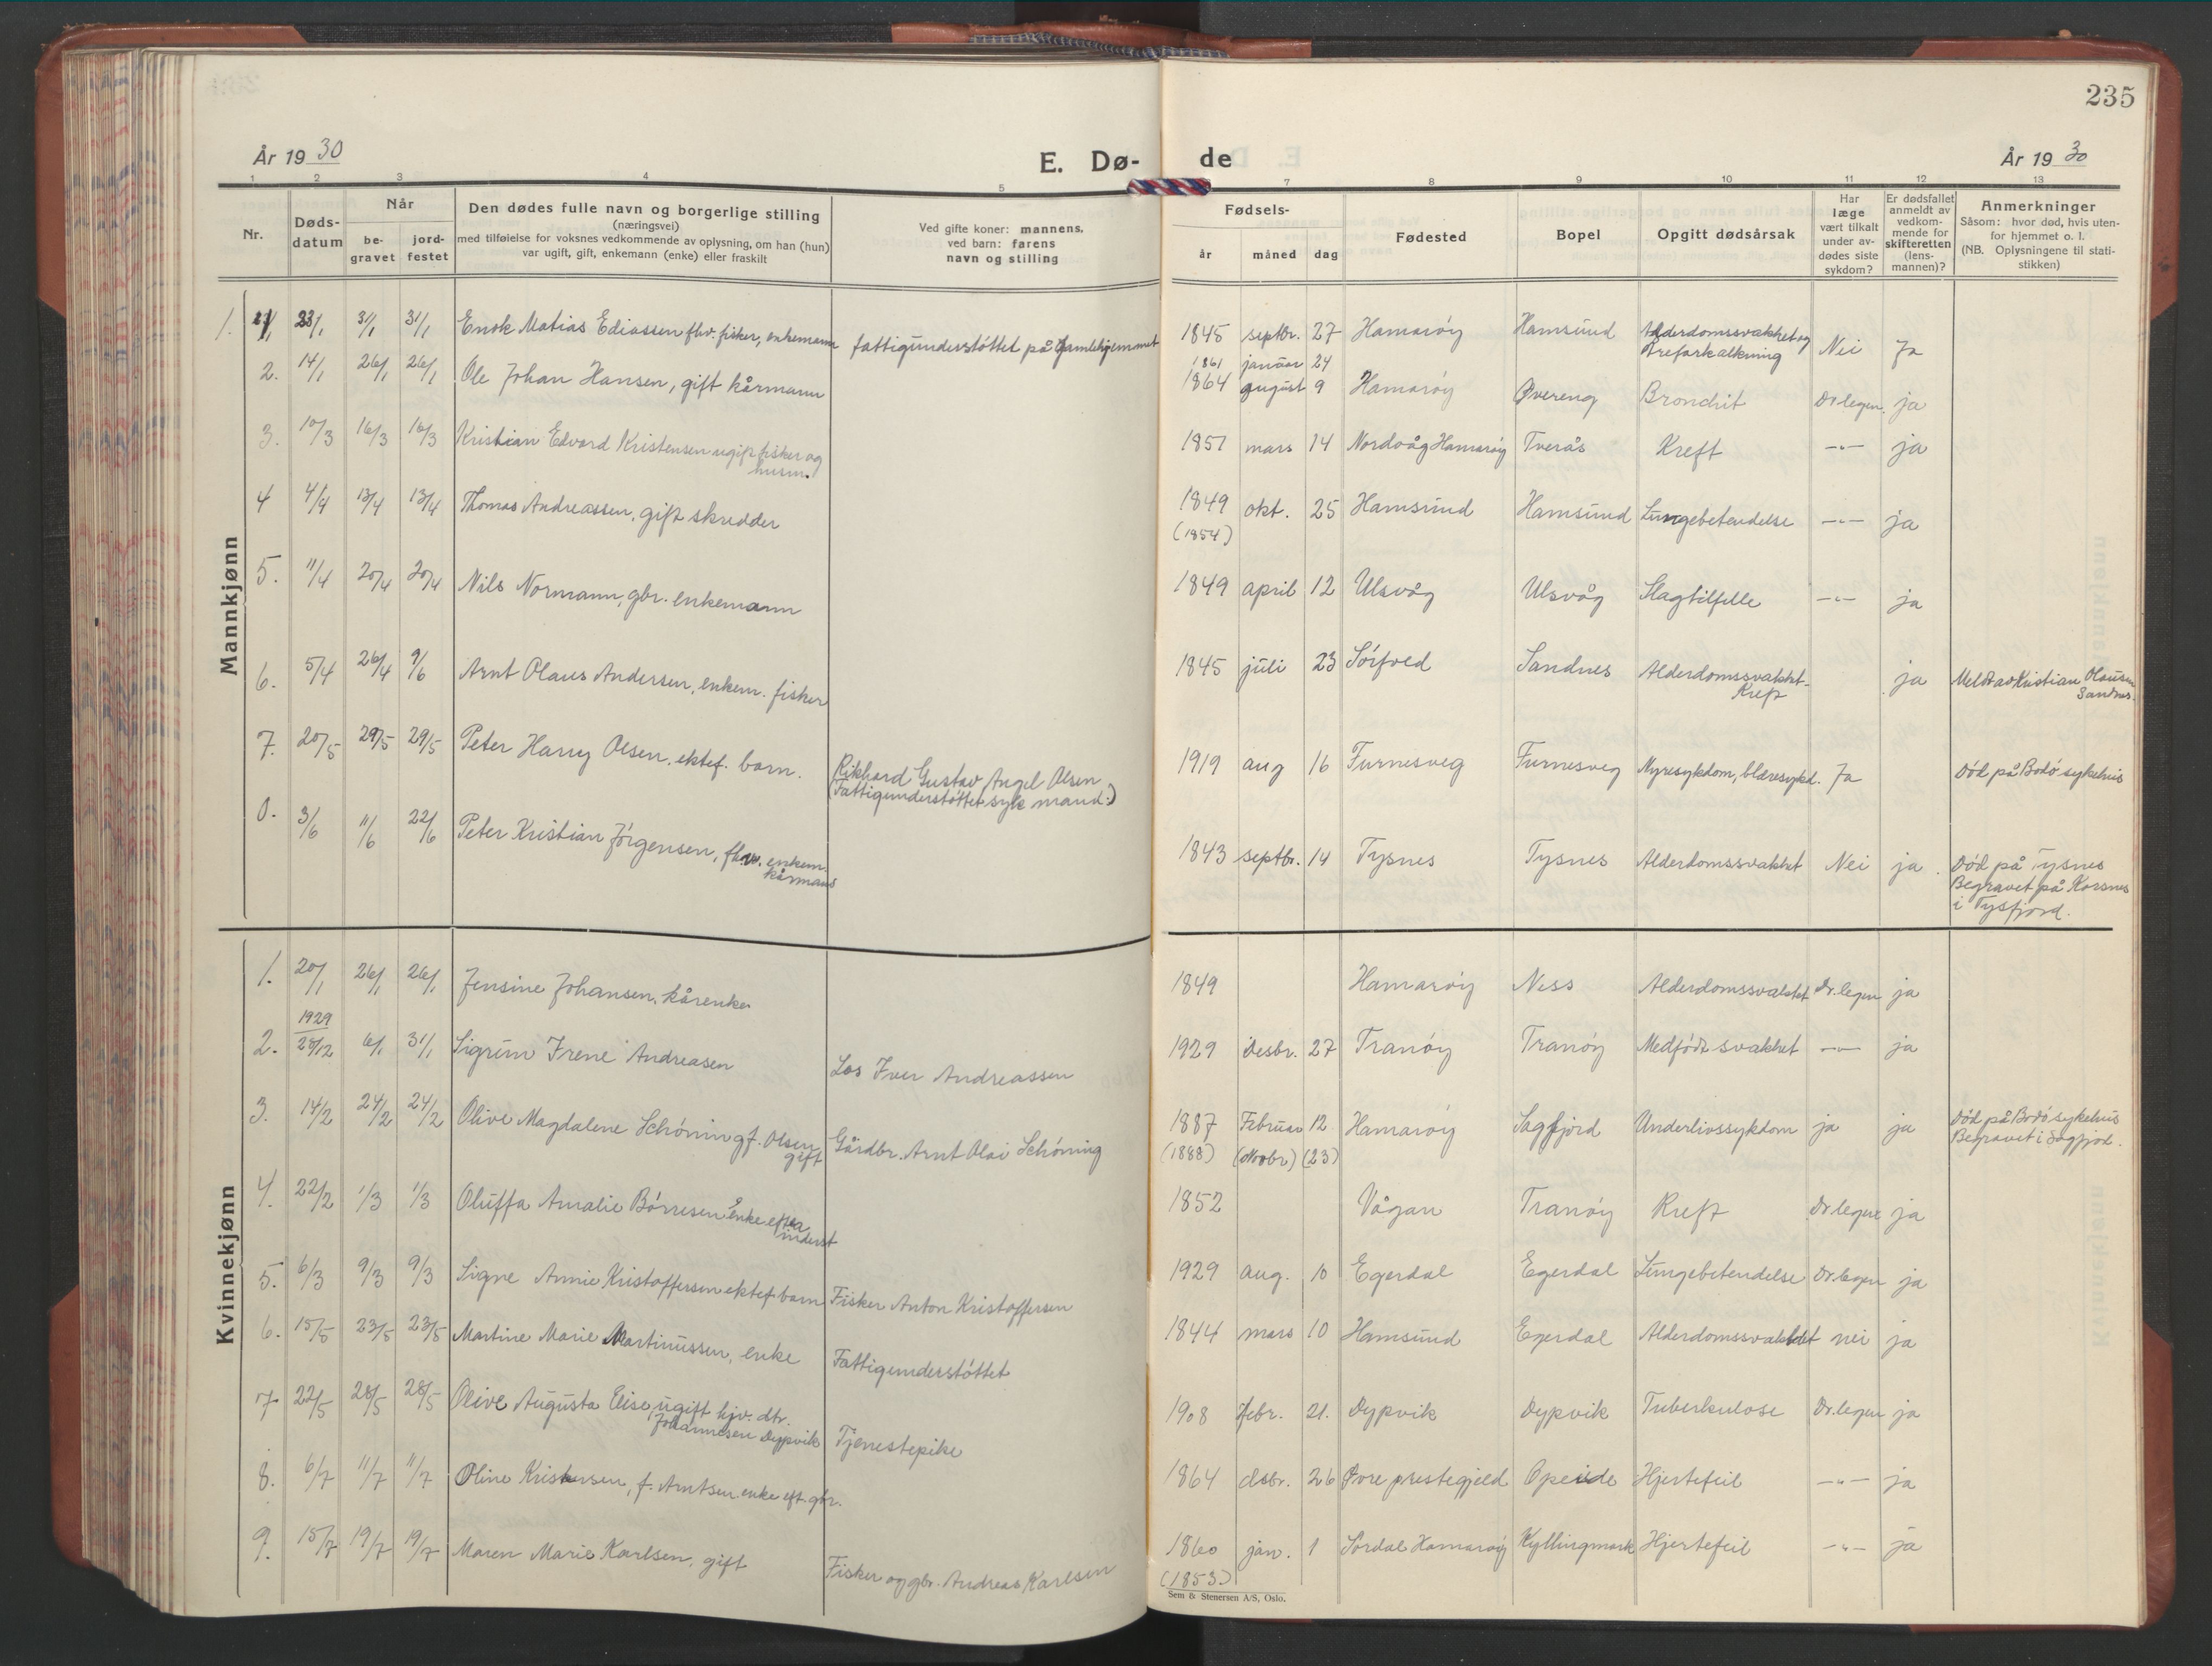 235
År 1930
E. Dø-
de
År 1930
1 2 3 4 5
7 8 9 10 11 12 13
Nr.
Døds-
datum
Når
be-
gravet
jord-
festet
Den dødes fulle navn og borgerlige stilling
(næringsvei)
med tilføielse for voksnes vedkommende av oplysning, om han (hun)
var ugift, gift, enkemann (enke) eller fraskilt
Ved gifte koner: mannens,
ved barn: farens
navn og stilling
Fødsels-
år måned dag
Fødested
Bopel
Opgitt dødsårsak
Har
læge
vært tilkalt
under av-
dødes siste
sykdom?
Er dødsfallet
anmeldt av
vedkom-
mende for
skifteretten
(lens-
mannen)?
Anmerkninger
Såsom: hvor død, hvis uten-
for hjemmet o. l.
(NB. Oplysningene til stati-
stikken)
Mannkjønn
1. 23/1 31/1 31/1 Enok Matias Ediassen fhv. fisker, enkemann fattigunderstøttet på Gamlehjemmet 1845 septbr. 27 Hamarøy Hamsund Alderdomssvakhet og
Areforkalkning Nei Ja
1861 januar 24
2. 14/1 26/1 26/1 Ole Johan Hansen, gift kårmann 1864 august 9 Hamarøy Øvereng Bronchit Dr. legen. ja
3. 10/3 16/3 16/3 Kristian Edvard Kristensen ugift fisker og
husm. 1851 mars 14 Nordvåg Hamarøy Tverås Kreft -"- ja
4 4/4 13/4 13/4 Thomas Andreassen, gift skredder 1849 okt. 25 Hamsund Hamsund Lungebetendelse -"- ja
(1854)
5. 11/4 20/4 20/4 Nils Normann, gbr. enkemann 1849 april 12 Ulsvåg Ulsvåg Slagtilfelle -"- ja
6. 5/4 26/4 9/6 Arnt Olaus Andersen, enkem. fisker 1845 juli 23 Sørfold Sandnes Alderdomssvakht.
Kreft ja Meldt av Kristian Olausen
Sandnes.
7. 20/5 29/5 29/5 Peter Harry Olsen, ektef. barn. Rikhard Gustav Angel Olsen
(Fattigunderstøttet syk mand.) 1919 aug 16 Furnesveg Furnesveg Nyresykdom, blæresykd. Ja Død på Bodø sykehus
0. 3/6 11/6 22/6 Peter Kristian Jørgensen, fhv. enkem.
kårmann 1843 septbr. 14 Tysnes Tysnes Alderdomssvakhet Nei ja. Død på Tysnes
Begravet på Korsnes
i Tysfjord.
Kvinnekjønn
1. 20/1 26/1 26/1 Jensine Johansen, kårenke 1849 Hamarøy Ness Alderdomssvakhet Dr. legen ja
1929
2. 28/12 6/1 31/1 Sigrun Irene Andreasen Los Iver Andreassen 1929 desbr. 27 Tranøy Tranøy Medfødt svakhet -"- ja
3. 14/2 24/2 24/2 Olive Magdalene Schøning f. Olsen
gift Gårdbr. Arnt Olai Schøning 1887 Februar 12 Hamarøy Sagfjord Underlivssykdom ja ja Død på Bodø sykehus
Begravet i Sagfjord.
(1888) (Novbr) (23)
4. 22/2 1/3 1/3 Oluffa Amalie Børresen enke efter
inderst 1852 Vågan Tranøy Kreft Dr. legen ja
5. 6/3 9/3 9/3 Signe Annie Kristoffersen ektef. barn Fisker Anton Kristoffersen 1929 aug. 10 Egerdal Egerdal Lungebetendelse Dr. legen ja
6. 15/5 23/5 23/5 Martine Marie Martinussen, enke Fattigunderstøttet 1844 mars 10 Hamsund Egerdal Alderdomssvakhet nei ja
7 22/5 28/5 28/5 Olive Augusta Elise ugift hjv. dtr.
Johannesen Dypvik Tjenestepike 1908 febr. 21. Dypvik Dypvik Tuberkulose Dr. legen ja
8. 6/7 11/7 11/7 Oline Kristensen, f. Arntsen enke eft. gbr. 1864 dsbr. 26 Øvre prestegjeld Opeide Hjertefeil -"- ja
9. 15/7 19/7 19/7 Maren Marie Karlsen, gift Fisker og gbr. Andreas Karlsen 1860 jan. 1 Sørdal Hamarøy Kyllingmark Hjertefeil -"- ja
(1853)
Sem & Stenersen A/S, Oslo.